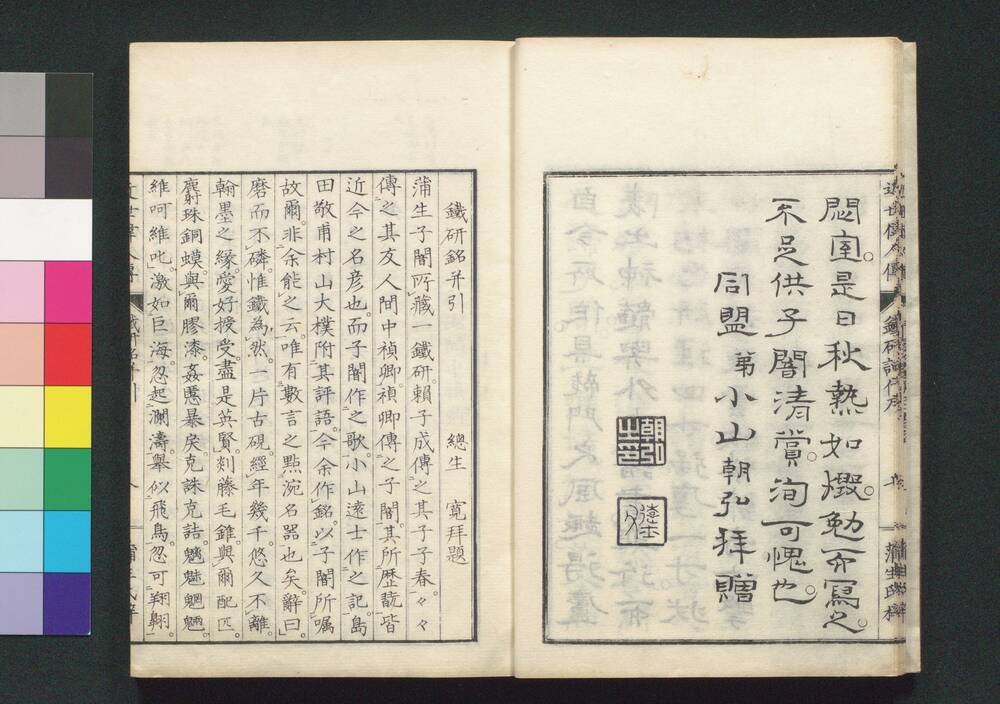 悶室。是日秋熱如燬。勉而寫之。
不足供子闇清賞。洵可愧也。
同盟弟小山朝弘拜贈
鐵研銘并引
總生 寛拜題
蒲生子闇所藏一鐵研。賴子成傳之其子子春。々々
傳之其友人間中禎卿。禎卿傳之子闇。其所歷翫皆
近今之名彥也。而子闇作之歌。小山遠士作之記。島
田敬甫村山大樸附其評語。今余作銘。以子闇所囑
故爾。非余能之云。唯有數言之點涴名器也矣。辭曰。
磨而不磷。惟鐵為然。一片古硯。經年幾千。悠久不離
翰墨之緣。愛好授受。盡是英賢。剡藤毛錐。與爾配匹。
麝珠銅蟆。與爾膠漆。姦慝暴戾。克誅克詰。魑魅魍魎。
維呵維叱。激如巨海。忽起瀾濤。擧似飛鳥。忽可翔翺。
近世偉人傳